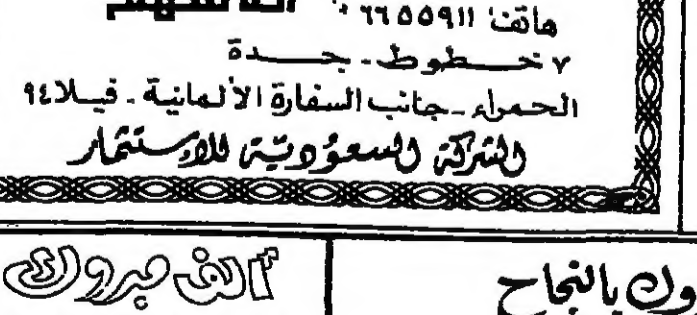 هاتف: ٦٦٥٥٩١١
٧ خـــطوط - جـــدة
الحمراء - جانب السفارة الألمانية - فيـلا ٩٤
الشركة السعودية للإستثمار
ألف مبروك
بالنجاح